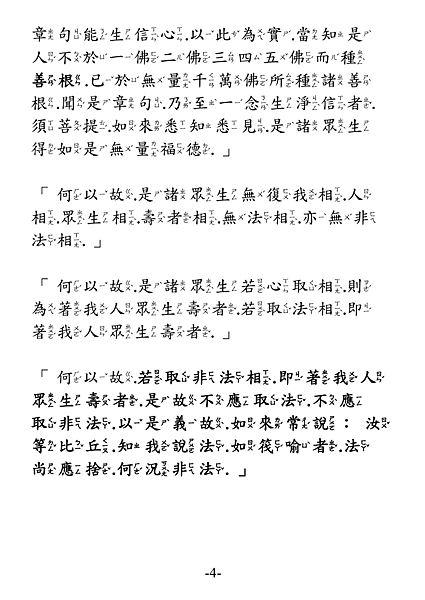 章句能生信心.以此為實.當知是
人不於一佛二佛三四五佛而種
善根.已於無量千萬佛所種諸善
根.聞是章句.乃至一念生淨信者.
須菩提.如來悉知悉見.是諸眾生
得如是無量福德.」
「何以故.是諸眾生無復我相.人
相.眾生相.壽者相.無法相.亦無非
法相.」
「何以故.是諸眾生若心取相.則
為著我人眾生壽者.若取法相.即
著我人眾生壽者.」
「何以故.若取非法相.即著我人
眾生壽者.是故不應取法.不應
取非法.以是義故.如來常說：汝
等比丘.知我說法.如筏喻者.法
尚應捨.何況非法.」
-4-